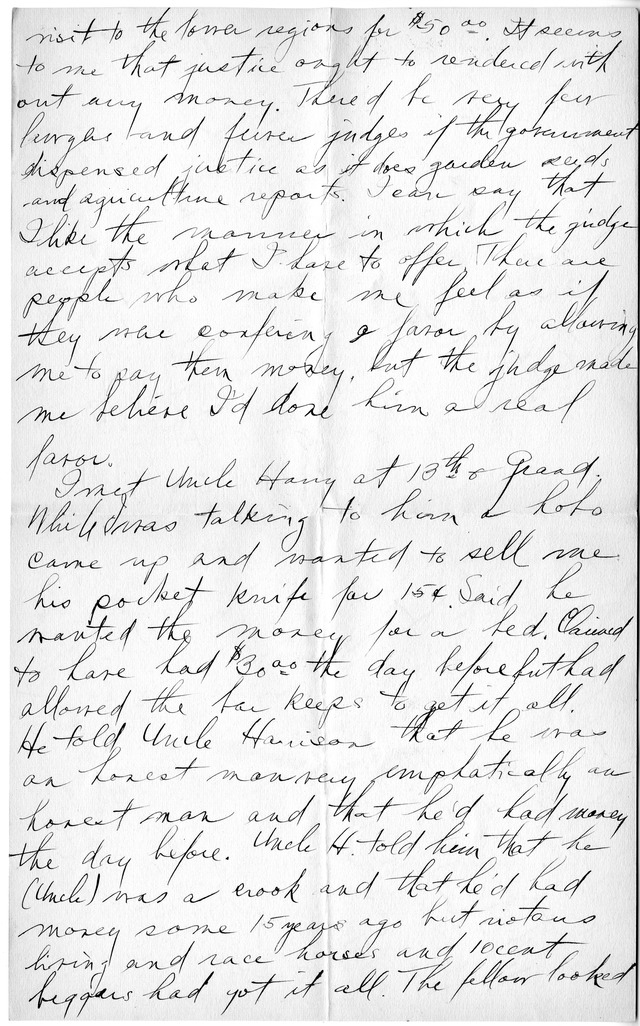 visit to the lower regions for $50 00. It seems
to me that justice ought to rendered with
out any money. There'd be very few
burglars and fewer judges if the government
dispensed justice as it does garden seeds
and agriculture reports. I can say that
I like the manner in which the judge
accepts what I have to offer. There are
people who make me feel as if
they were confering a favor by allowing
me to pay them money, but the judge made
me believe I'd done him a real
favor.
I met Uncle Harry at 13th & Grand.
While I was talking to him a hobo
came up and wanted to sell me
his pocket knife for 15¢. Said he
wanted the money for a bed. Claimed
to have had $30 00 the day before but had
allowed the bar keeps to get it all.
He told Uncle Harrison that he was
an honest man very emphatically an
honest man and that he'd had money
the day before. Uncle H. told him that he
(Uncle) was a crook and that he'd had
money some 15 years ago but riotous
living and race horses and 10 cent
beggars had got it all. The fellow looked